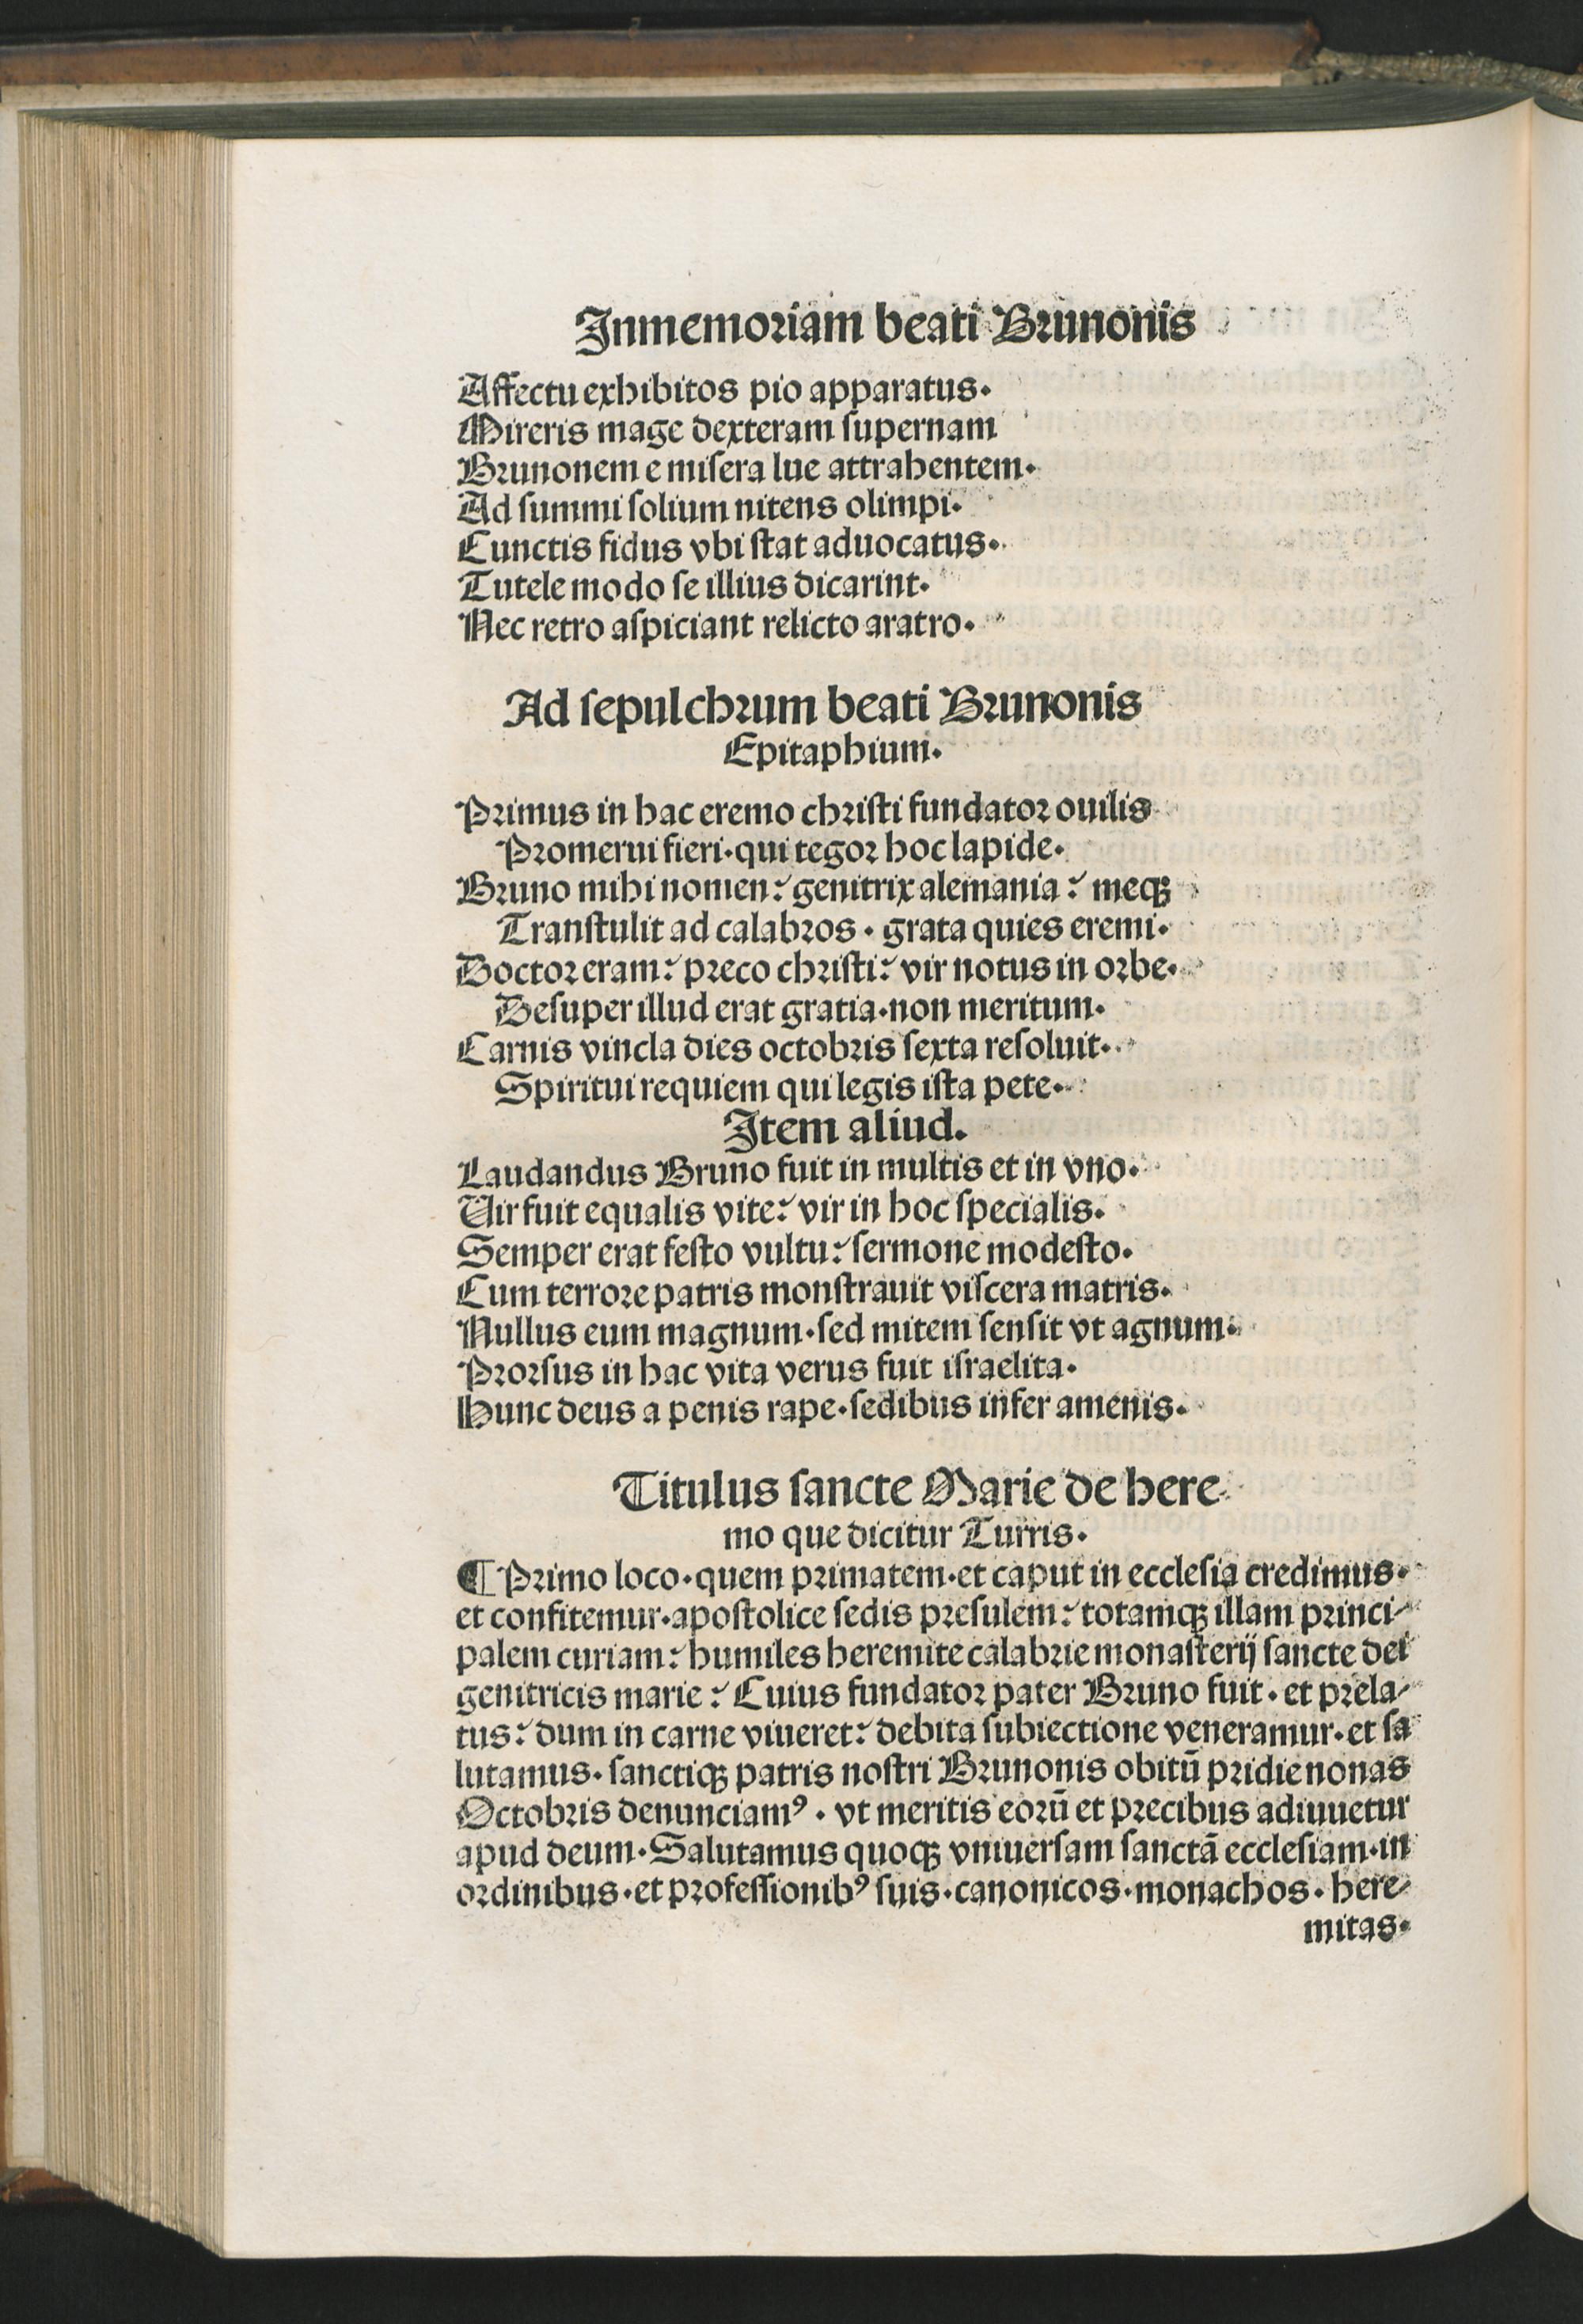 Inmemoriam beati Brunonis
Affectu exhibitos pio apparatus.
Mireris mage dexteram ſupernam
Brunonem e miſera lue attrahentem.
Ad ſummi ſolium nitens olimpi.
Cunctis fidus vbi ſtat aduocatus.
Tutele modo ſe illius dicarint.
Nec retro aſpiciant relicto aratro.
Ad ſepulchrum beati Brunonis
Epitaphium.
Primus in hac eremo chriſti fundator ouilis
Promerui fieri.qui tegor hoc lapide.
Bruno mihi nomen: genitrix alemania : meqꝫ
Tranſtulit ad calabros . grata quies eremi.
Doctor eram: preco chriſti: vir notus in orbe.
Deſuper illud erat gratia.non meritum.
Carnis vincla dies octobris ſexta reſoluit.
Spiritui requiem qui legis iſta pete.
Item aliud.
Laudandus Bruno fuit in multis et in vno.
Uir fuit equalis vite: vir in hoc ſpecialis.
Semper erat feſto vultu: ſermone modeſto.
Cum terrore patris monſtrauit viſcera matris.
Nullus eum magnum.ſed mitem ſenſit vt agnum.
Prorſus in hac vita verus fuit iſraelita.
Hunc deus a penis rape.ſedibus infer amenis.
Titulus ſancte Marie de here
mo que dicitur Turris.
¶ Primo loco.quem primatem.et caput in eccleſia credimus.
et confitemur.apoſtolice ſedis preſulem: totamqꝫ illam princi⸗
palem curiam: humiles heremite calabrie monaſterij ſancte dei
genitricis marie : Cuius fundator pater Bruno fuit . et prela⸗
tus: dum in carne viueret: debita ſubiectione veneramur.et ſa
lutamus. ſanctiqꝫ patris noſtri Brunonis obitū pridie nonas
Octobris denunciamꝰ . vt meritis eorū et precibus adiuuetur
apud deum.Salutamus quoqꝫ vniuerſam ſanctā eccleſiam.in
ordinibus.et profeſſionibꝰ ſuis.canonicos.monachos. here⸗
mitas.